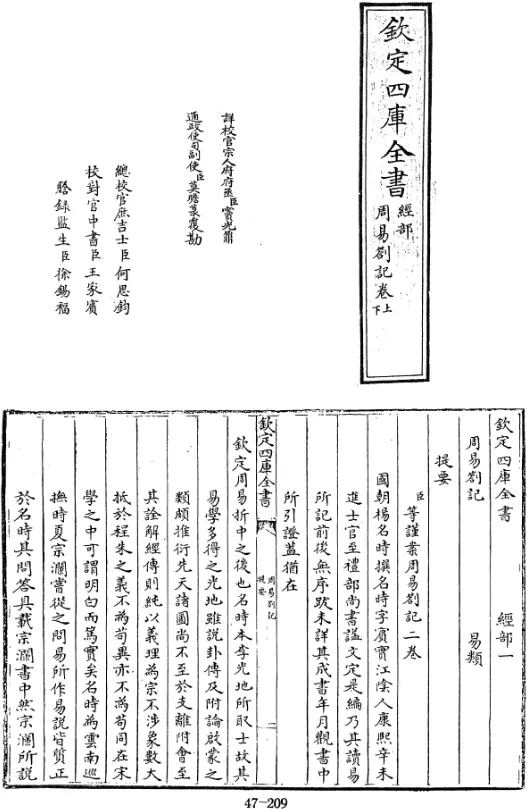 欽定四庫全書
經部
周易劄記卷上下
詳校官宗人府府丞臣竇光鼐
通政使司副使臣莫瞻菉覆勘
總校官庶吉士臣何思鈞
校對官中書臣王家賓
謄錄監生臣徐錫福
欽定四庫全書 經部一
周易劄記 易類
提要
臣等謹案周易劄記二卷
國朝楊名時撰名時字賓實江陰人康熙辛未
進士官至禮部尚書諡文定是編乃其讀易
所記前後無序跋未詳其成書年月觀書中
所引證蓋猶在
欽定四庫全書
周易劄記
提要
二
欽定周易折中之後也名時本李光地所取士故其
易學多得之光地雖說卦傳及附論啟蒙之
類頗推衍先天諸圖尚不至於支離附會至
其詮解經傳則純以義理為宗不涉象數大
抵於程朱之義不為苟異亦不為苟同在宋
學之中可謂明白而篤實矣名時為雲南巡
撫時夏宗瀾嘗從之問易所作易說皆質正
於名時其問答具載宗瀾書中然宗瀾所說
47-209